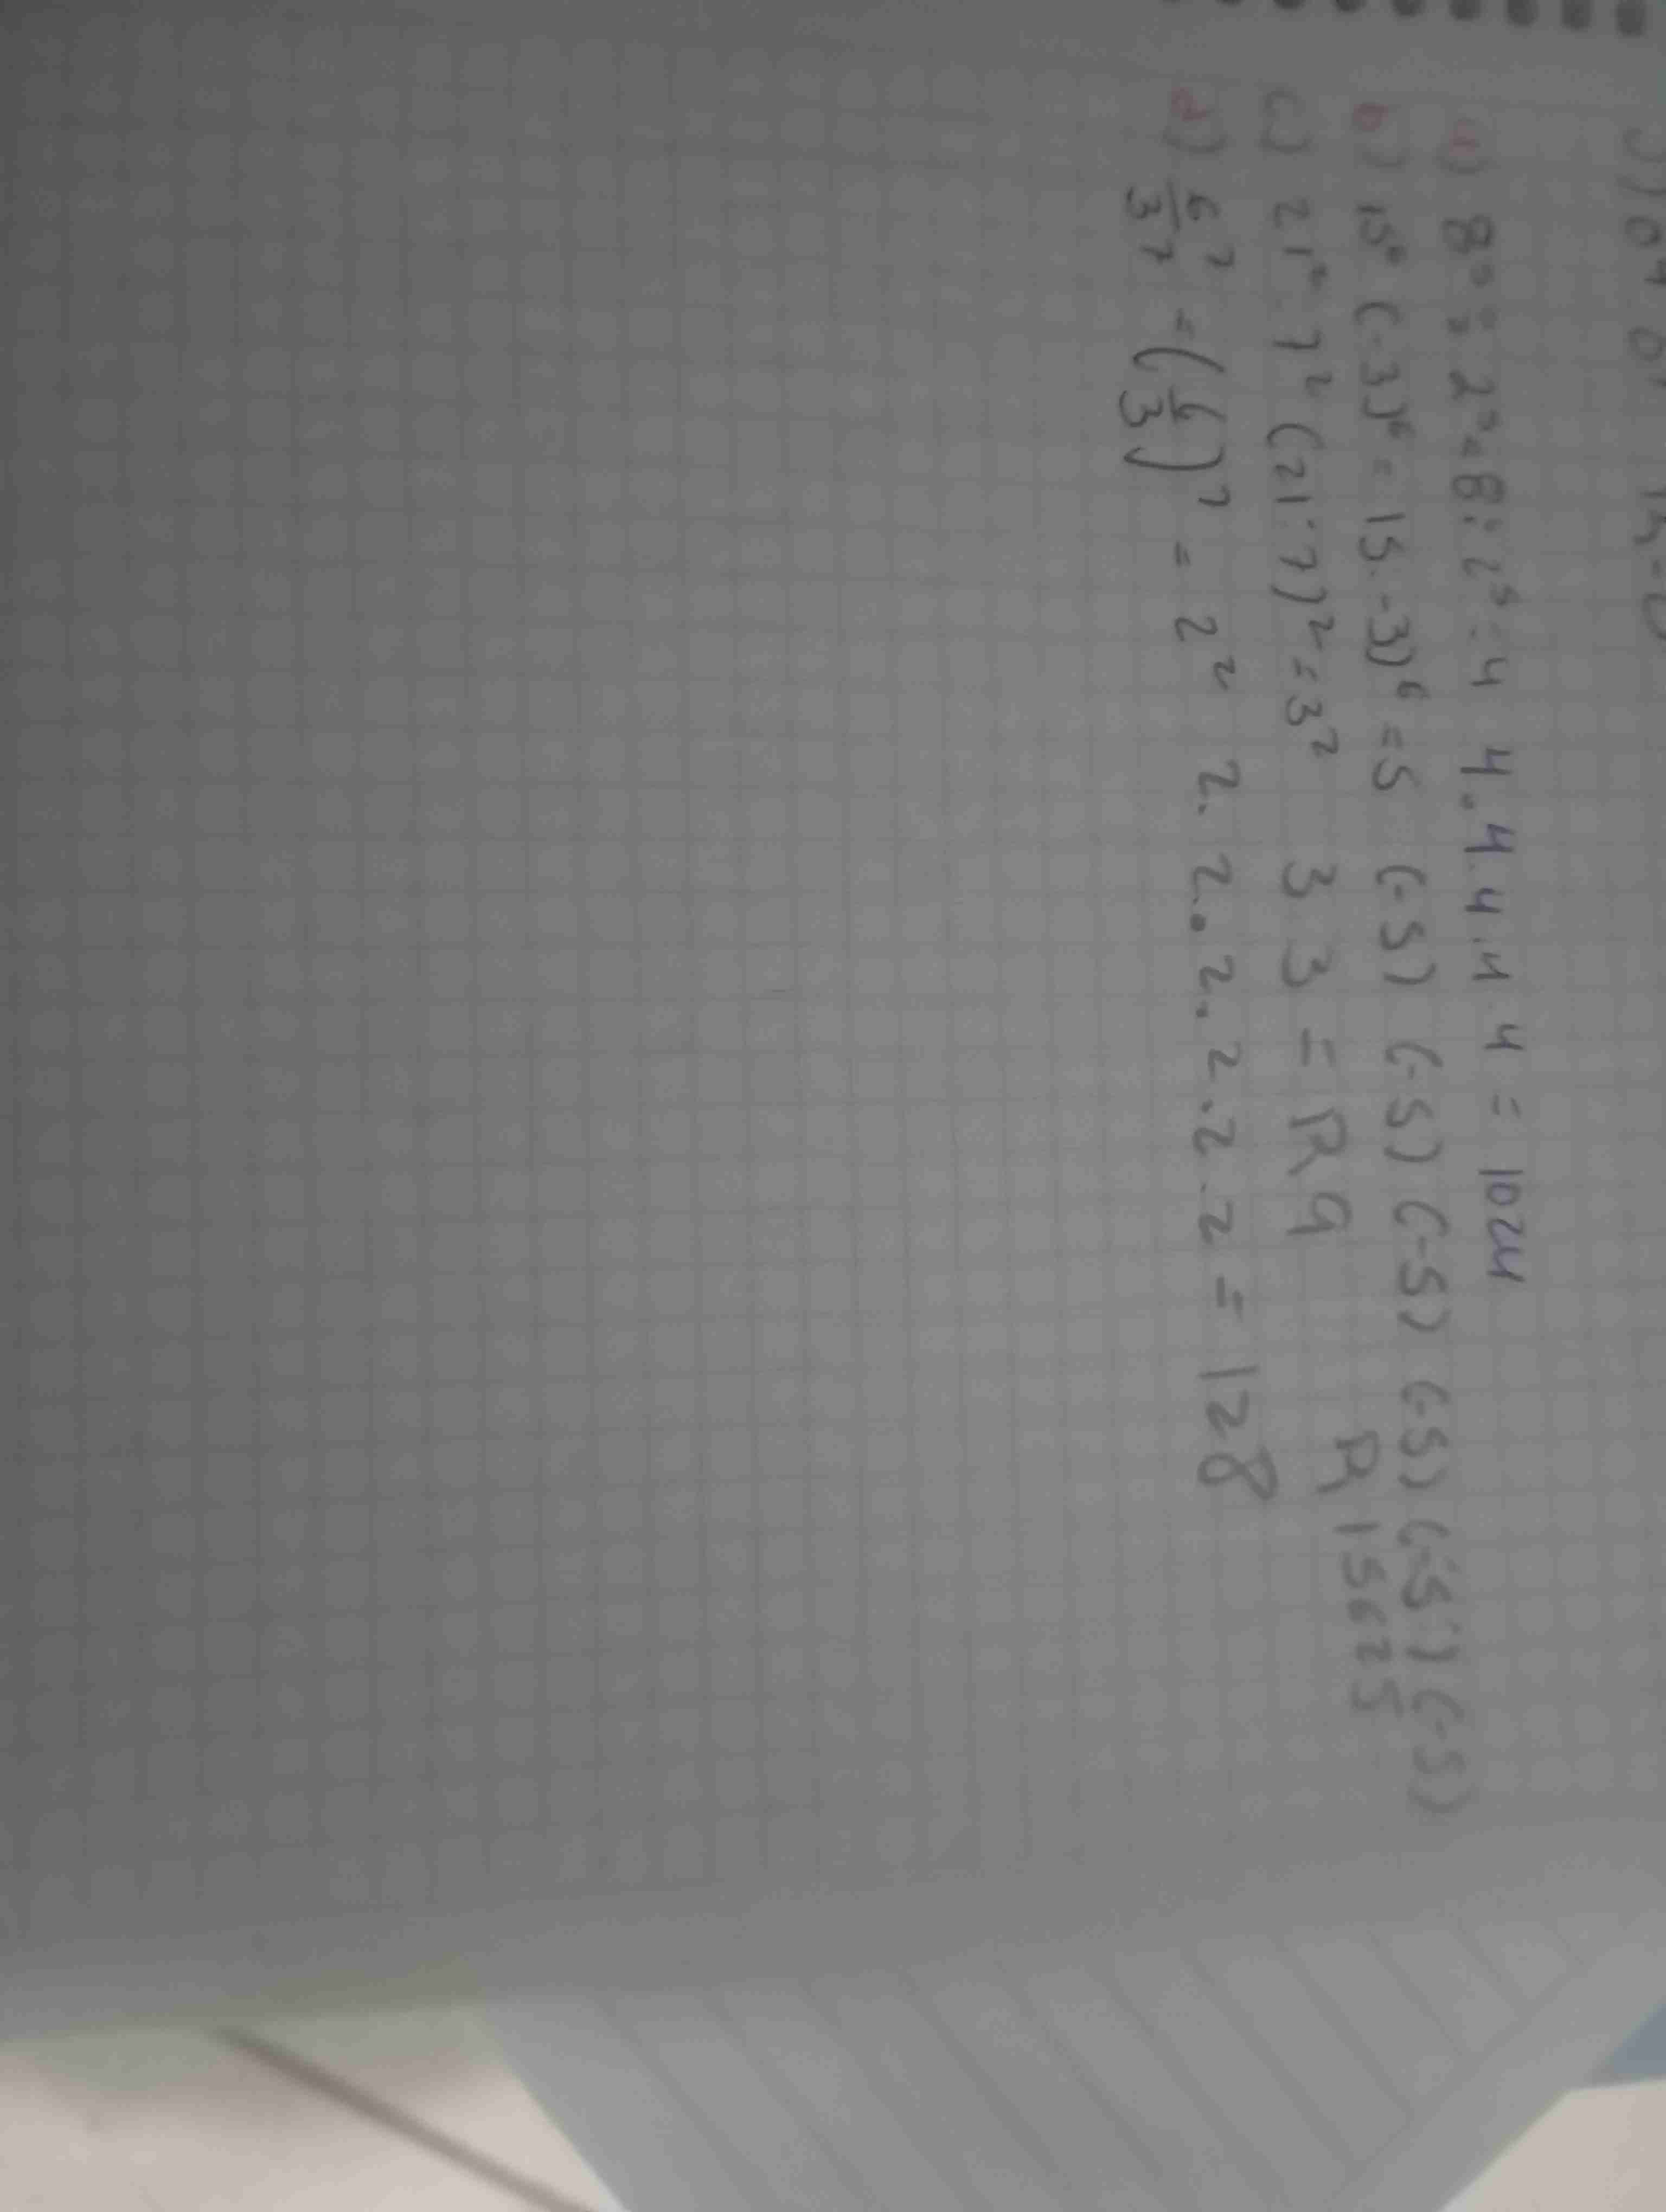 a) 8⁵ : 2⁵ = 8 : 2⁵ = 4 4 . 4 . 4 . 4 . 4 = 1024
b) 15⁶ (-3)⁶ = 15 . -3)⁶ = 5 (-5) (-5) (-5) (-5) (-5) (-5)
R 15625
c) 21² 7² (21 : 7)² = 3² 3 3 = R 9
d) 6⁷/3⁷ = (6/3)⁷ = 2² 2 . 2 . 2 . 2 . 2 . 2 = 128